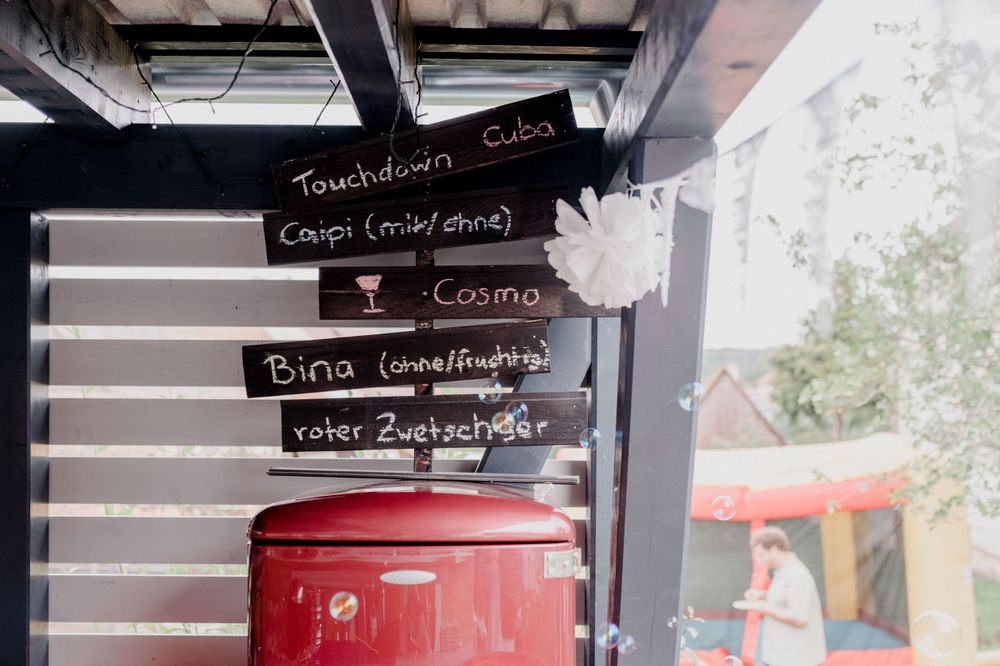 Touchdown Cuba
Caipi (mit/ohne)
Cosmo
Bina (ohne/fruchtig)
roter Zwetschger